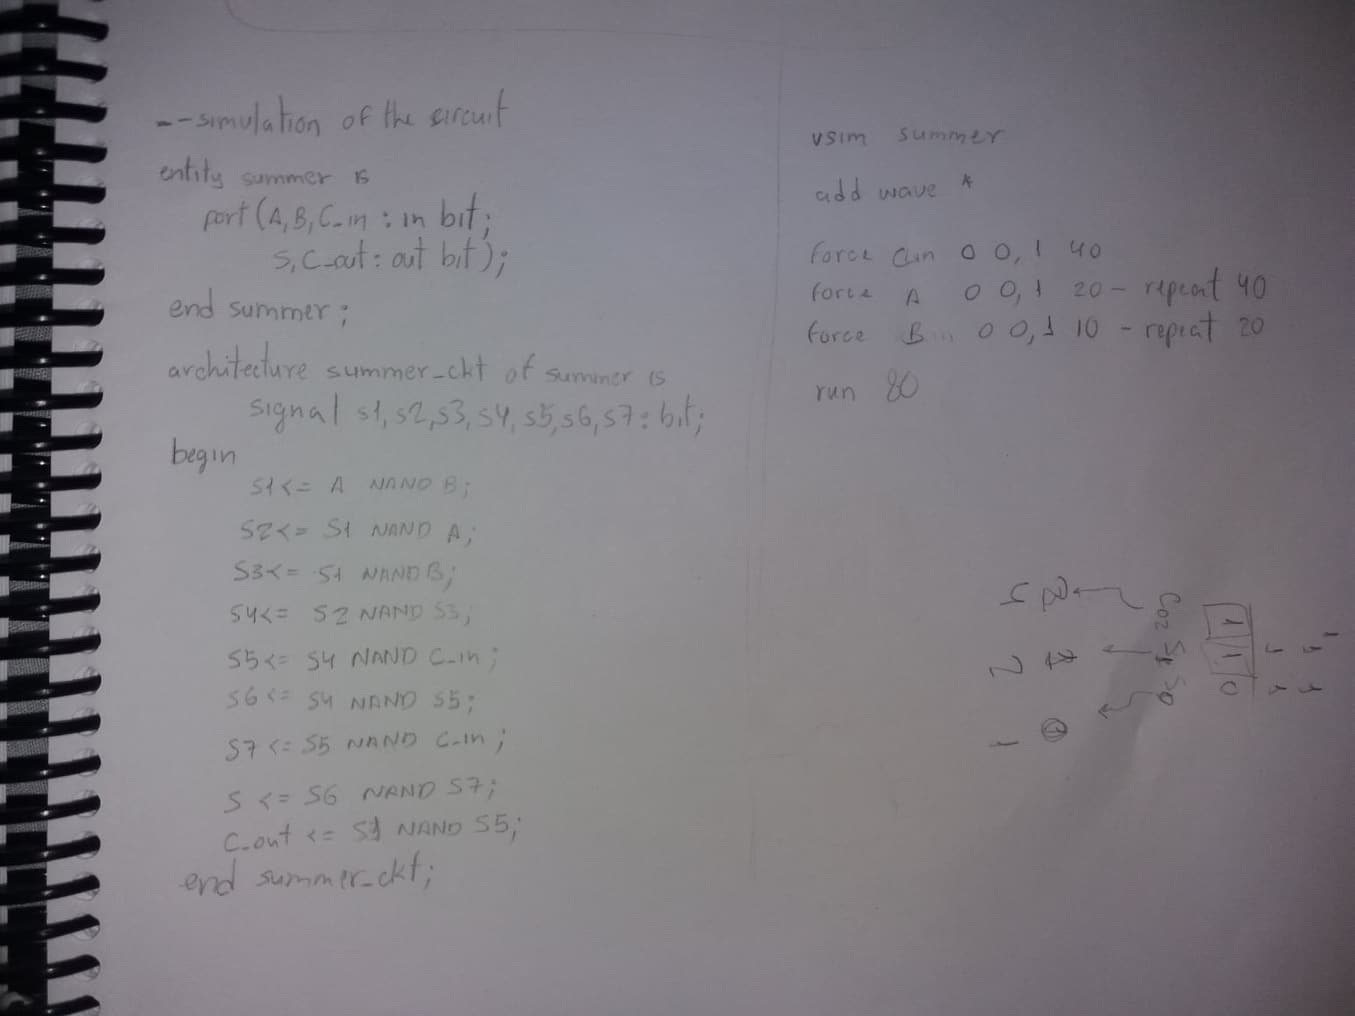 --simulation of the circuit
entity summer is
port (A, B, C_in : in bit;
S, C_out : out bit);
end summer;
architecture summer_ckt of summer is
signal s1, s2, s3, s4, s5, s6, s7 : bit;
begin
S1 <= A NAND B;
S2 <= S1 NAND A;
S3 <= S1 NAND B;
S4 <= S2 NAND S3;
S5 <= S4 NAND C_in;
S6 <= S4 NAND S5;
S7 <= S5 NAND C_in;
S <= S6 NAND S7;
C_out <= S1 NAND S5;
end summer_ckt;
vsim summer
add wave *
force C_in 0 0, 1 40
force A 0 0, 1 20 - repeat 40
force B 0 0, 1 10 - repeat 20
run 80
1 1
1 1
1 1 0
Co2 S1 S0
2 1